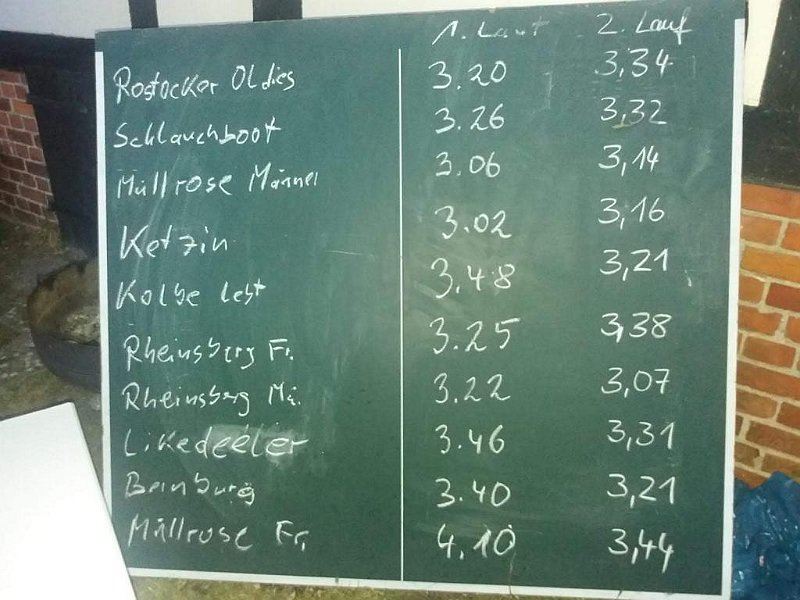 1. Lauf 2. Lauf
Rostocker Oldies 3.20 3,34
Schlauchboot 3.26 3,32
Müllrose Männer 3.06 3,14
Ketzin 3.02 3,16
Kolbe lebt 3.48 3,21
Rheinsberg Fr. 3.25 3,38
Rheinsberg Mä. 3.22 3,07
Likedeeler 3.46 3,31
Bernburg 3.40 3,21
Müllrose Fr. 4.10 3,44